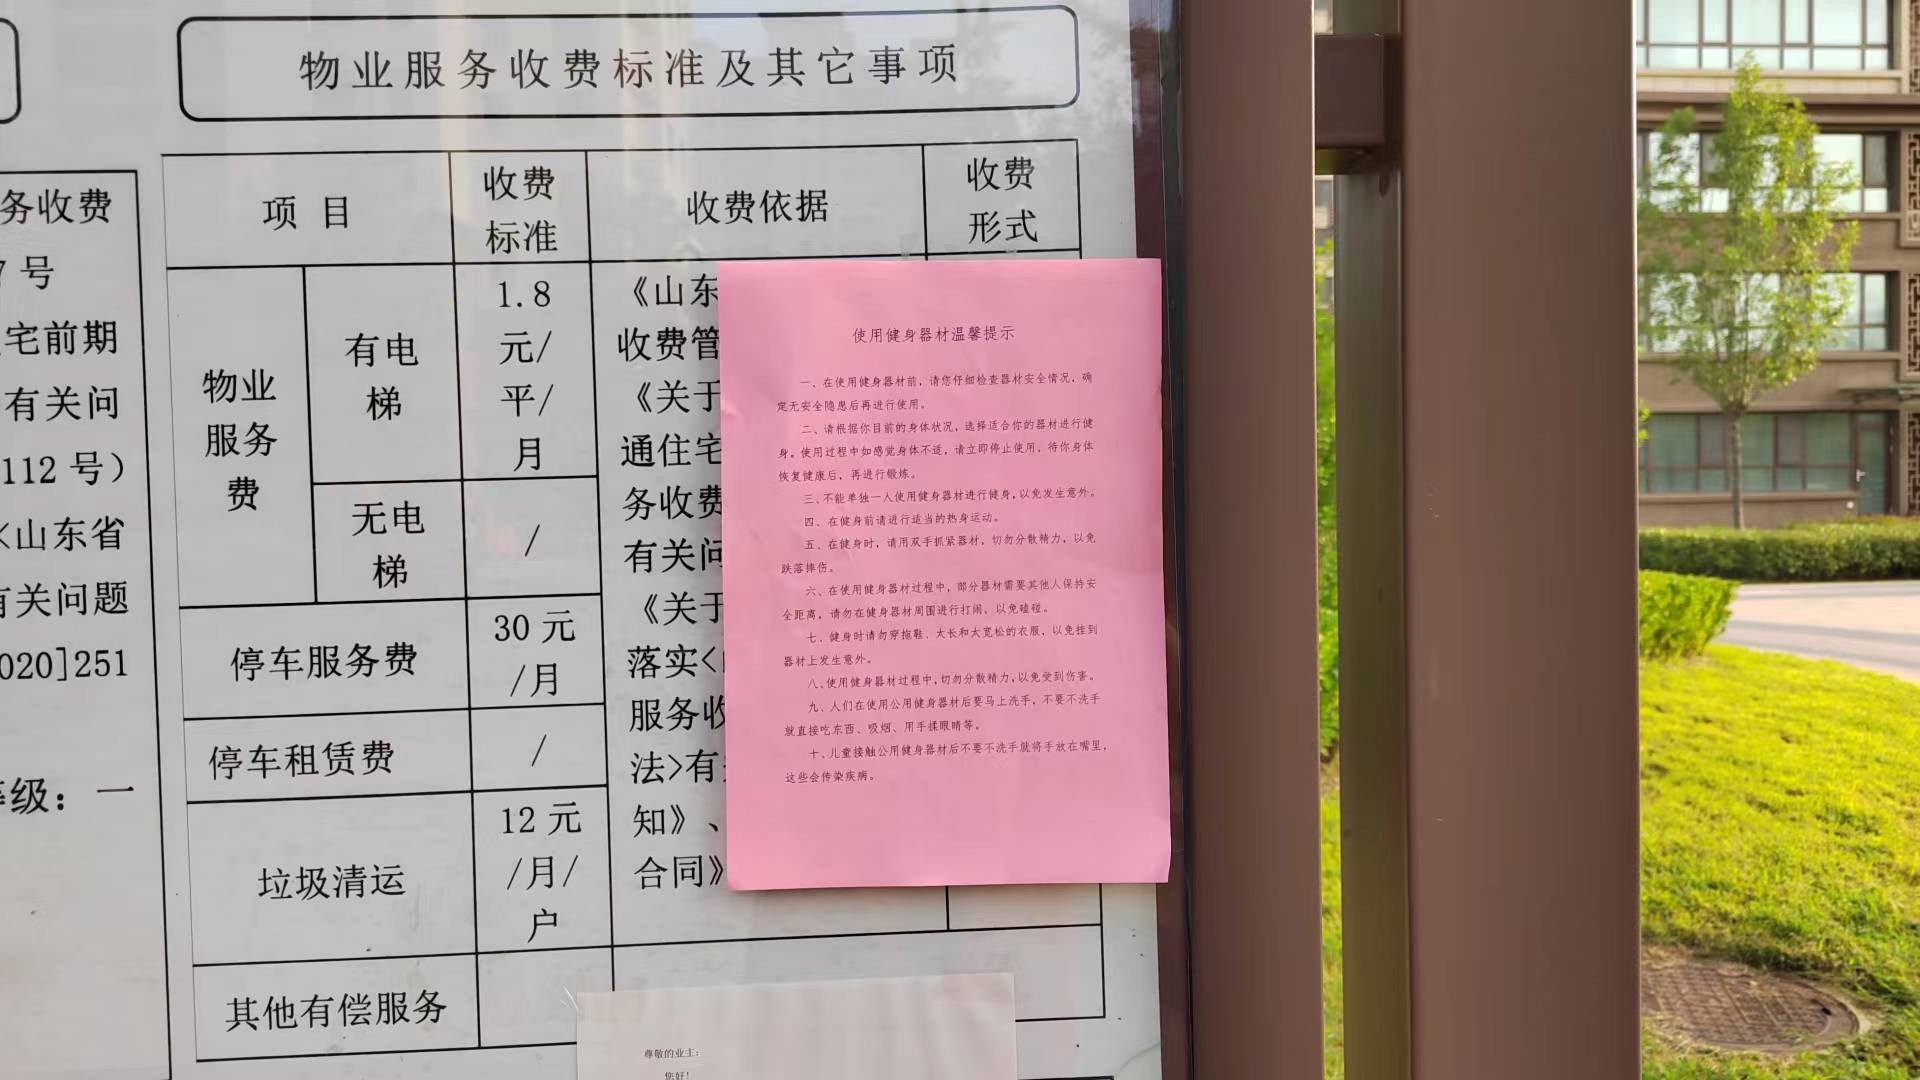 物业服务收费标准及其它事项
务收费
号
宅前期
有关问
112号）
<山东省
有关问题
020]251
级：一
项 目
收费
标准
收费依据
收费
形式
物业
服务
费
有电
梯
1.8
元/
平/
月
无电
梯
/
停车服务费
30元
/月
停车租赁费
/
垃圾清运
12元
/月/
户
其他有偿服务
《山东
收费管
《关于
通住宅
务收费
有关问
《关于
落实<
服务收
法>有
知》、
合同》
使用健身器材温馨提示
一、在使用健身器材前，请您仔细检查器材安全情况，确
定无安全隐患后再进行使用。
二、请根据你目前的身体状况，选择适合你的器材进行健
身。使用过程中如感觉身体不适，请立即停止使用，待你身体
恢复健康后，再进行锻炼。
三、不能单独一人使用健身器材进行健身，以免发生意外。
四、在健身前请进行适当的热身运动。
五、在健身时，请用双手抓紧器材，切勿分散精力，以免
跌落摔伤。
六、在使用健身器材过程中，部分器材需要其他人保持安
全距离，请勿在健身器材周围进行打闹，以免磕碰。
七、健身时请勿穿拖鞋、太长和太宽松的衣服，以免挂到
器材上发生意外。
八、使用健身器材过程中，切勿分散精力，以免受到伤害。
九、人们在使用公用健身器材后要马上洗手，不要不洗手
就直接吃东西、吸烟、用手揉眼睛等。
十、儿童接触公用健身器材后不要不洗手就将手放在嘴里，
这些会传染疾病。
尊敬的业主：
您好！